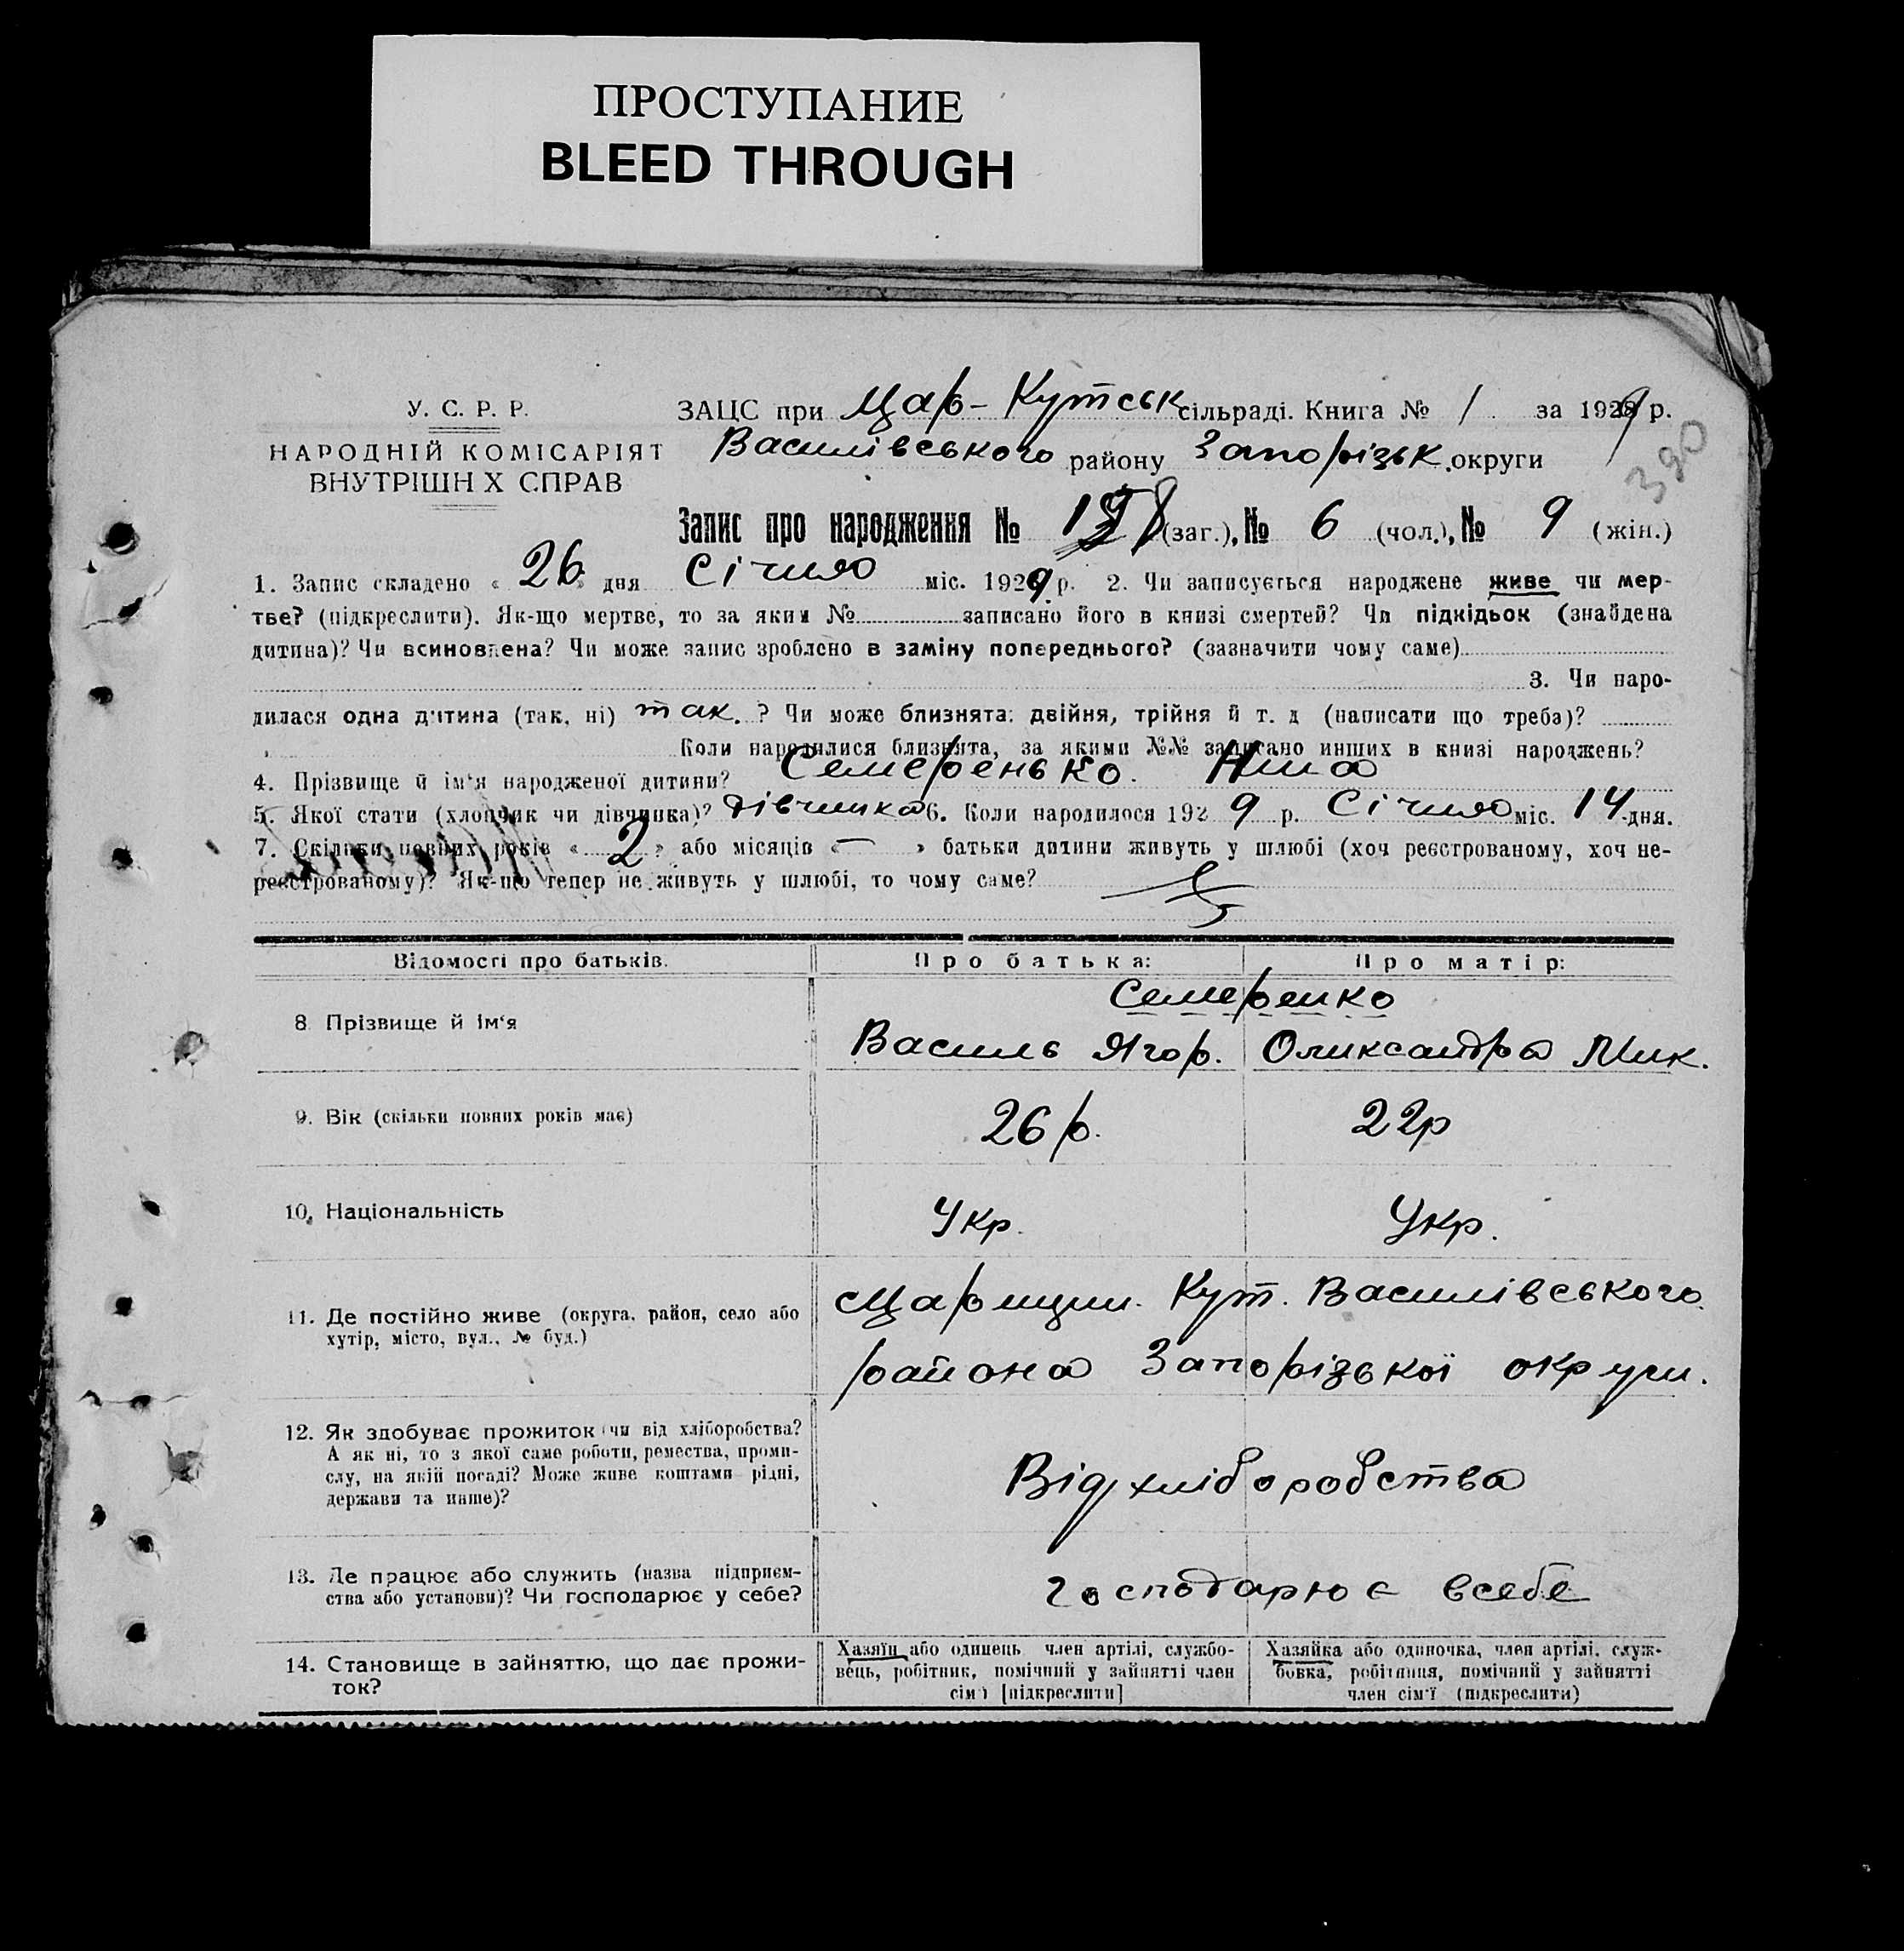 ПРОСТУПАНИЕ
BLEED THROUGH
У. С. Р. Р.
НАРОДНІЙ КОМІСАРІЯТ
ВНУТРІШН Х СПРАВ
ЗАЦС при Цар-Кутськ сільраді. Книга № 1 за 1929 р.
Василівського району Запорізьк. округи
390
Запис про народження № (заг.), № 6 (чол.), № 9 (жін.)
1. Запис складено « 26 » дня Січня міс. 1929 р. 2. Чи записується народжене живе чи мер-
тве? (підкреслити). Як-що мертве, то за яким № записано його в книзі смертей? Чи підкідьок (знайдена
дитина)? Чи всиновлена? Чи може запис зроблено в заміну попереднього? (зазначити чому саме)
3. Чи наро-
дилася одна дитина (так, ні) так. ? Чи може близнята: двійня, трійня й т. д (написати що треба)?
Коли народилися близнята, за якими №№ записано инших в книзі народжень?
4. Прізвище й ім‘я народженої дитини? Семеренько. Нина
5. Якої стати (хлопчик чи дівчинка)? дівчинка 6. Коли народилося 1929 р. Січня міс. 14 дня.
7. Скільки повних років « 2 » або місяців « — » батьки дитини живуть у шлюбі (хоч реєстрованому, хоч не-
реєстрованому)? Як-що тепер не живуть у шлюбі, то чому саме?
Відомості про батьків.
Про батька:
Про матір:
8 Прізвище й ім‘я
Семеренко
Василь Ягор.
Олександра Мик.
9. Вік (скільки повних років має)
26 р.
22р
10. Національність
Укр.
Укр.
11. Де постійно живе (округа, район, село або
хутір, місто, вул., № буд.)
Царицин. Кут. Василівського
района Запорізької округи.
12. Як здобуває прожиток (чи від хліборобства?
А як ні, то з якої саме роботи, ремества, проми-
слу, на якій посаді? Може живе коштами рідні,
держави та инше)?
Від хліборобства
13. Де працює або служить (назва підприєм-
ства або установи)? Чи господарює у себе?
господарює всебе
14. Становище в зайняттю, що дає прожи-
ток?
Хазяїн або одинець, член артілі, службо-
вець, робітник, помічний у зайнятті член
сім'ї [підкреслити]
Хазяйка або одиночка, член артілі, служ-
бовка, робітниця, помічний у зайнятті
член сім'ї (підкреслити)